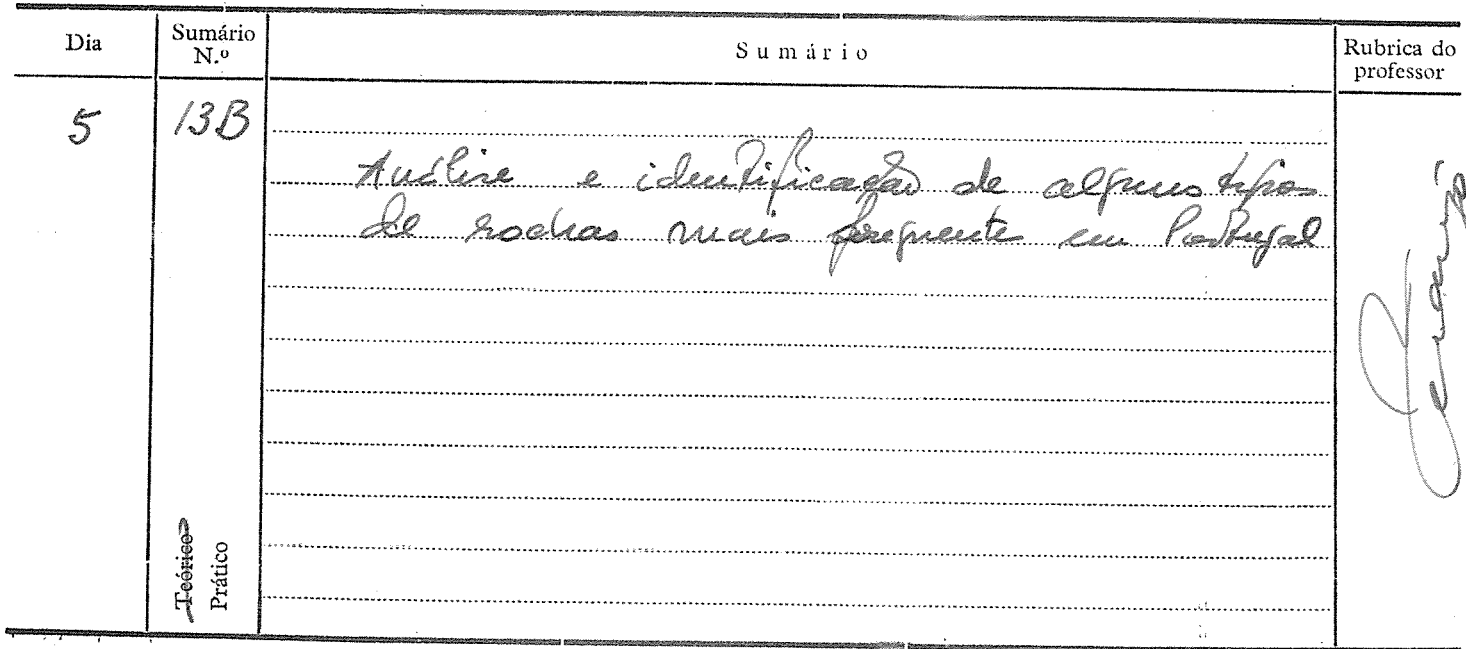 Dia
Sumário N.º
Sumário
Rubrica do professor
5
13B
Análise e identificação de alguns tipos
de rochas mais frequentes em Portugal
Teórico
Prático